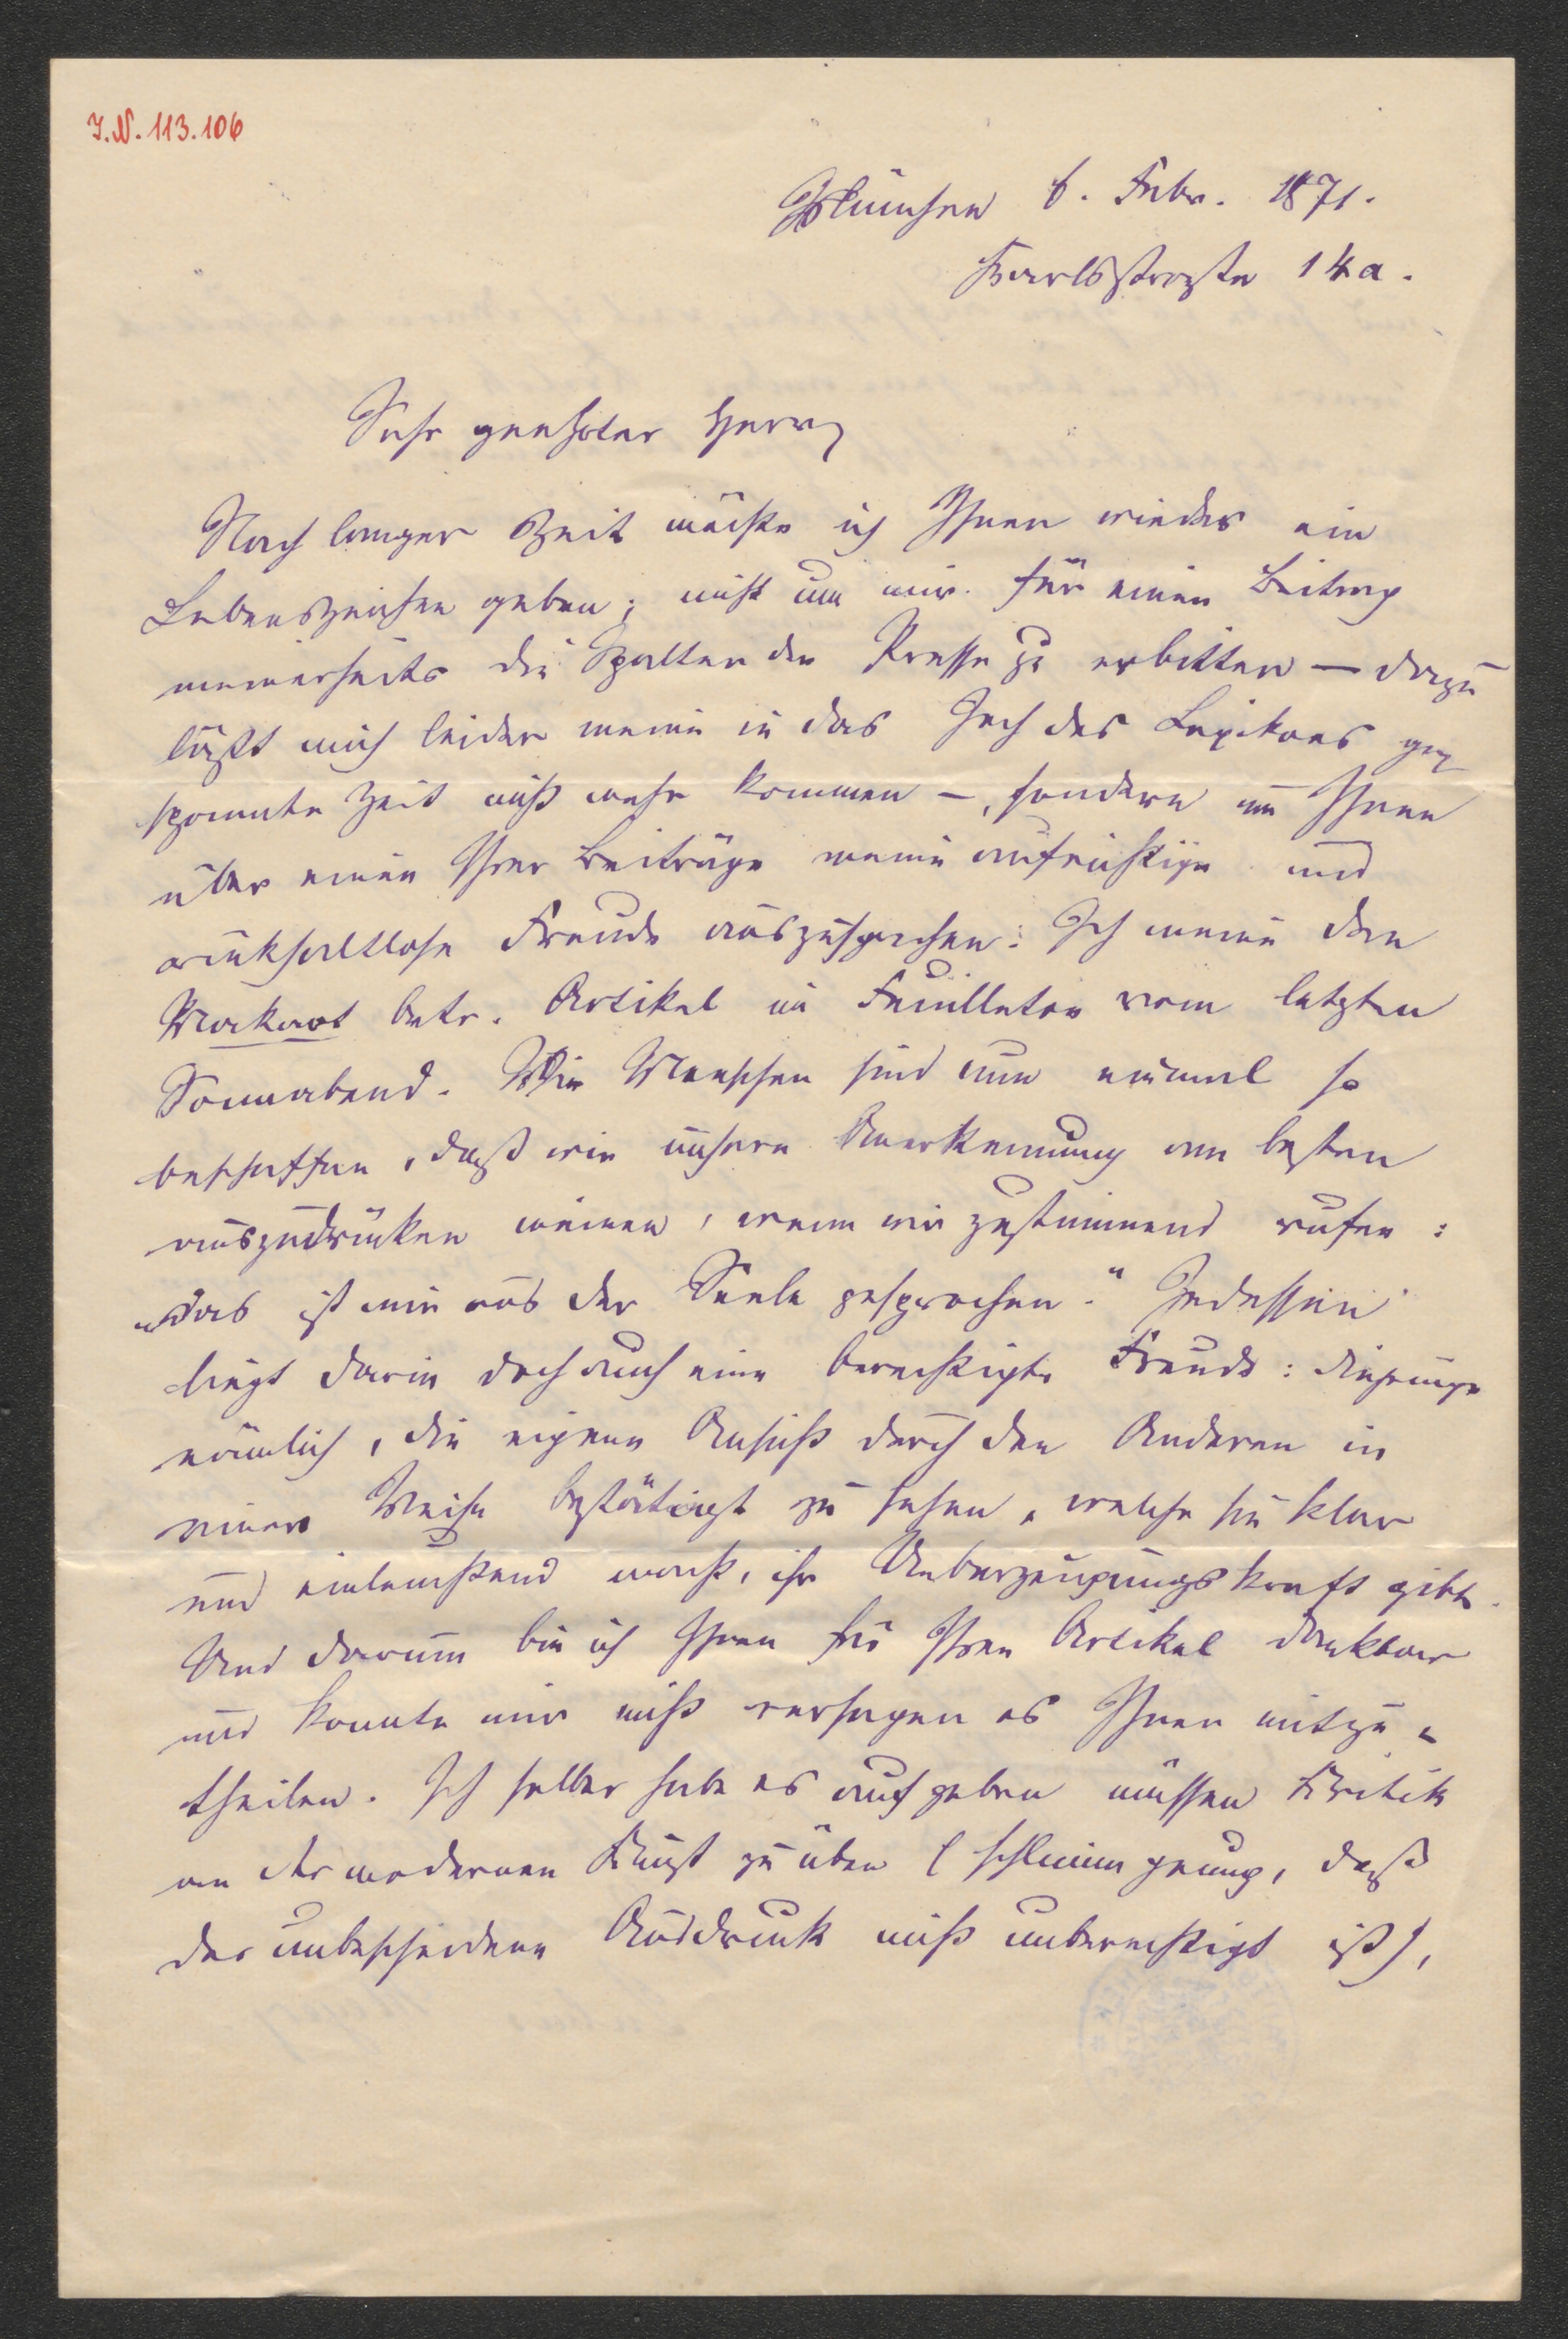 I.N. 113.106
München 6. Febr. 1871.
Karlsstraße 14a.
Sehr geehrter Herr,
Nach langer Zeit möchte ich Ihnen wieder ein
Lebenszeichen geben; nicht um mir für einen Beitrag
meinerseits die Spalten der Presse zu erbitten – dazu
läßt mich leider meine in das Joch des Lexikons ge-
spannte Zeit nicht mehr kommen –, sondern um Ihnen
über einen Ihrer Beiträge meine aufrichtige und
rückhaltlose Freude auszusprechen: Ich meine den
Makart betr. Artikel im Feuilleton vom letzten
Sonnabend. Wir Menschen sind nun einmal so
beschaffen, daß wir unsere Anerkennung am besten
auszudrücken meinen, wenn wir zustimmend rufen:
„das ist mir aus der Seele gesprochen." Indessen
liegt darin doch auch eine berechtigte Freude: diejenige
nämlich, die eigene Ansicht durch den Anderen in
einer Weise bestätigt zu sehen, welche sie klar
und einleuchtend macht, ihr Ueberzeugungskraft gibt.
Und darum bin ich Ihnen für Ihren Artikel dankbar
und konnte mir nicht versagen es Ihnen mitzu-
theilen. Ich selber habe es aufgeben müssen Kritik
an der modernen Kunst zu üben (schlimm genug, daß
der unbescheidene Ausdruck nicht unberechtigt ist),